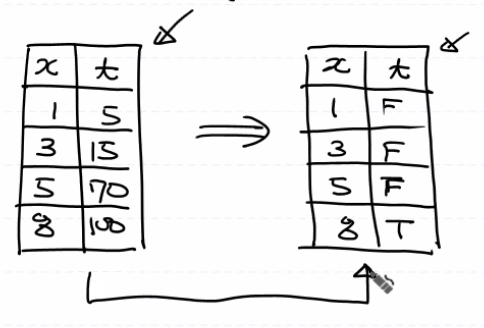 x t
1 5
3 15
5 70
8 100
x t
1 F
3 F
5 F
8 T